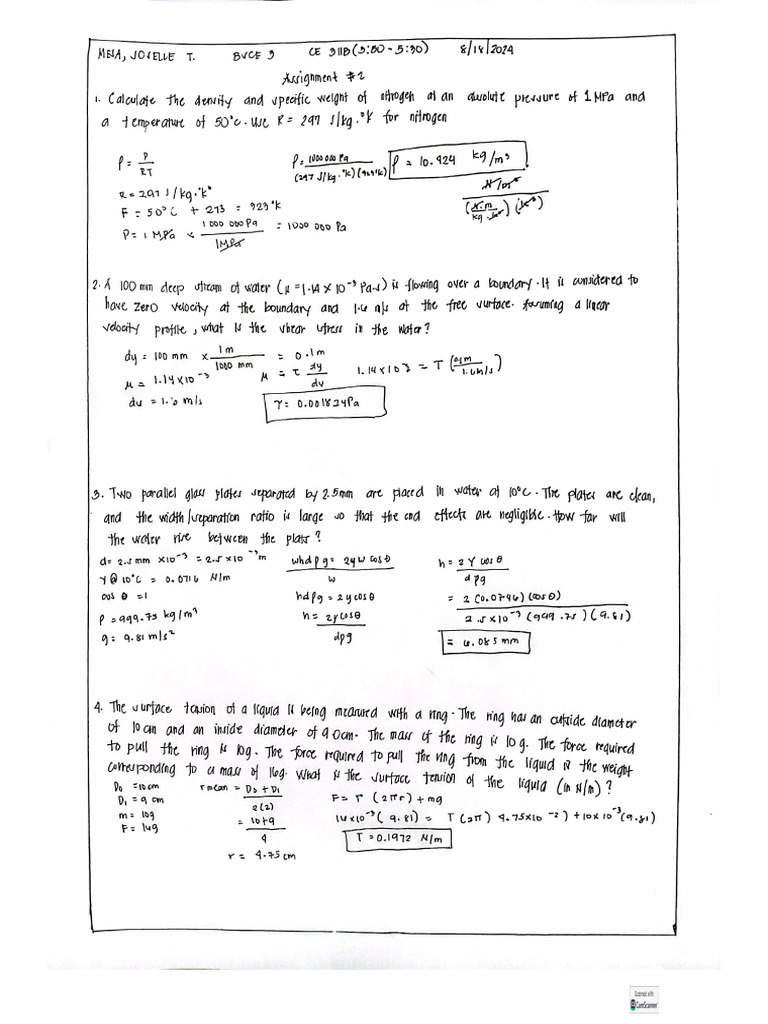 MESA, JOVELLE T. BSCE 3 CE 311B (3:30 - 5:30) 8/18/2024
Assignment #2
1. Calculate the density and specific weight of nitrogen at an absolute pressure of 1 MPa and
a temperature of 50°C. Use R = 297 J/kg.°K for nitrogen
ρ = P / RT
ρ = 1000 000 Pa / (297 J/kg.°K) (323°K)
ρ = 10.424 kg/m³
R = 297 J/kg.°K
N/m² / (N.m / kg.K) (K)
F = 50°C + 273 = 323°K
P = 1 MPa x 1 000 000 Pa / 1 MPa = 1000 000 Pa
2. A 100 mm deep stream of water (μ = 1.14 x 10⁻³ Pa.s) is flowing over a boundary. It is considered to
have zero velocity at the boundary and 1.6 m/s at the free surface. Assuming a linear
velocity profile, what is the shear stress in the water?
dy = 100 mm x 1 m / 1000 mm = 0.1 m
μ = 1.14x10⁻³
μ = τ dy / dv
1.14x10⁻³ = T (0.1 m / 1.6 m/s)
dv = 1.6 m/s
τ = 0.001824Pa
3. Two parallel glass plates separated by 2.5mm are placed in water at 10°C. The plates are clean,
and the width/separation ratio is large so that the end effects are negligible. How far will
the water rise between the plats?
d = 2.5 mm x10⁻³ = 2.5 x 10⁻³ m
whdρg = 2γw cosθ / w
h = 2γ cosθ / dρg
γ @ 10°C = 0.0716 N/m
cos θ = 1
hdρg = 2γcosθ
= 2 (0.0746) (cosθ) / 2.5x10⁻³ (999.75) (9.81)
ρ = 999.75 kg/m³
h = 2γcosθ / dρg
g = 9.81 m/s²
= 6.085 mm
4. The surface tension of a liquid is being measured with a ring. The ring has an outside diameter
of 10 cm and an inside diameter of 9.0cm. The mass of the ring is 10 g. The force required
to pull the ring is 10g. The force required to pull the ring from the liquid is the weight
corresponding to a mass of 16g. What is the surface tension of the liquid (in N/m)?
D₀ = 10 cm
r mean = D₀ + D₁ / 2(2)
F = T (2πr) + mg
D₁ = 9 cm
m = 10g
= 10+9 / 4
16x10⁻³ (9.81) = T (2π) 4.75x10⁻²) + 10x10⁻³ (9.81)
F = 16g
T = 0.1972 N/m
r = 4.75 cm
Scanned with
CamScanner